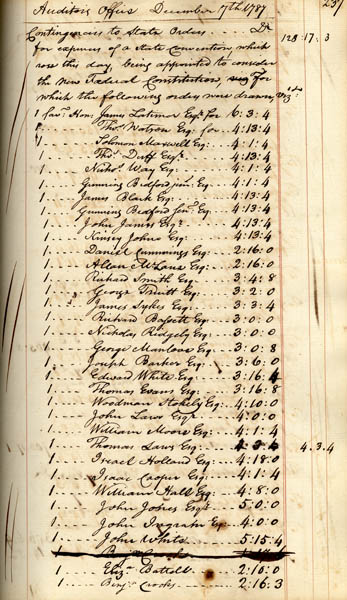 237
Auditors Office December 7th 1787
Contingencies to State Orders Dr
for expences of a State Convention, which 128 17 : 3
rose this day, being appointed to consider
the new Federal Constitution, for
which the following orders were drawn, viz
1 favr Hon: James Latimer Esqr for 6 : 3 : 4
1 Thos Watson Esq. for 4 : 13 : 4
1 Solomon Maxwell Esq: 4 : 1 : 4
1 Thos Duff Esqr 4 : 13 : 4
1 Nichos Way Esq: 4 : 1 : 4
1 Gunning Bedford junr Esq: 4 : 1 : 4
1 James Black Esq: 4 : 13 : 4
1 Gunning Bedford Senr Esq: 4 : 13 : 4
1 John James Esqr 4 : 13 : 4
1 Kensey Johns Esq: 4 : 13 : 4
1 Daniel Cummings Esq: 2 : 16 : 0
1 Allen McLane Esq: 2 : 16 : 0
1 Richard Smith Esq: 3 : 4 : 8
1 George Truitt Esq: 3 : 2 : 0
1 James Sykes Esq: 3 : 3 : 4
1 Richard Bassett Esq: 3 : 0 : 0
1 Nicholas Ridgely Esq: 3 : 0 : 0
1 George Manlove Esq: 3 : 0 : 8
1 Joseph Barker Esq: 3 : 6 : 0
1 Edward White Esq: 3 : 16 : 4
1 Thomas Evans Esq: 3 : 16 : 8
1 Woodman Stokely Esq: 4 : 10 : 0
1 John Laws Esqr 4 : 0 : 0
1 William Moore Esq: 4 : 1 : 4
1 Thomas Laws Esq: 4 : 3 : 4 4 . 3 . 4
1 Israel Holland Esq: 4 : 18 : 0
1 Isaac Cooper Esq: 4 : 1 : 4
1 William Hall Esq: 4 : 8 : 0
1 John Jones Esqr 5 : 0 : 0
1 John Ingram Esq: 4 : 0 : 0
1 John White 5 : 15 : 4
1 Eliz. Battell 2 : 10 : 0
1 Benj. Crooks 2 : 16 : 3